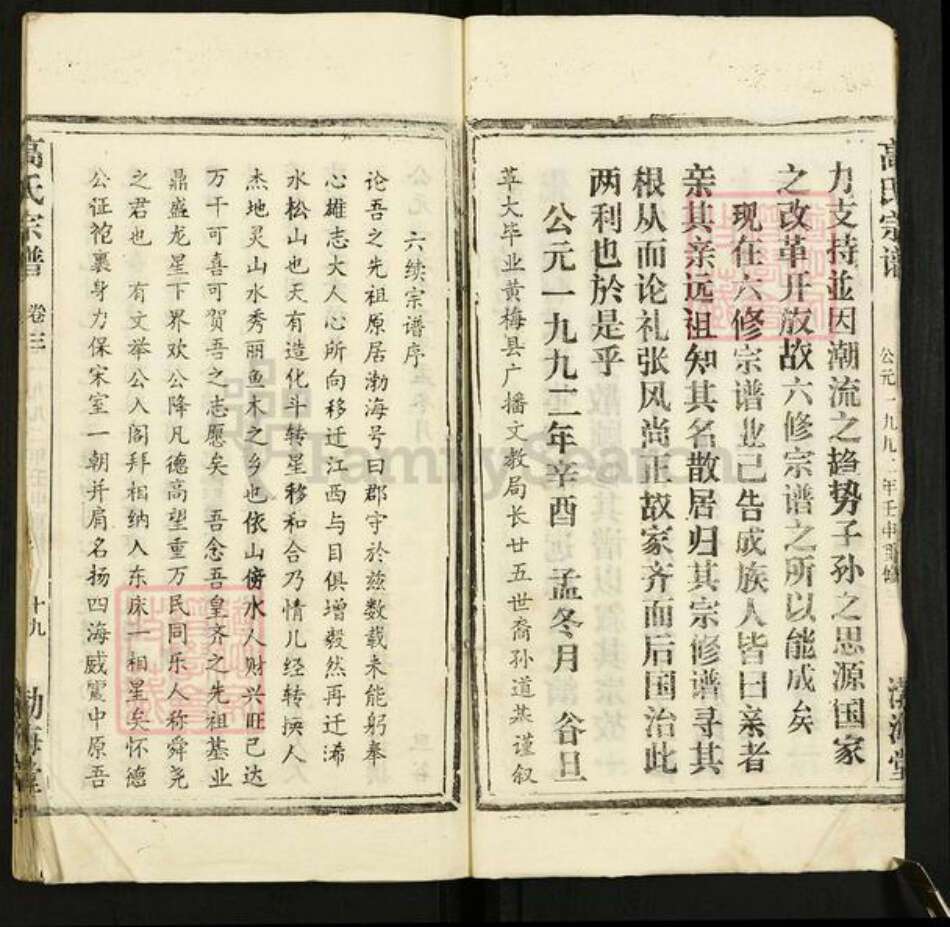 高氏宗谱
渤海堂
力支持並因潮流之趋势子孙之思源国家
之改革开放故六修宗谱之所以能成矣
现在六修宗谱业已告成族人皆曰亲者
亲其亲远祖知其名散居归其宗修谱寻其
根从而论礼张风尚正故家齐而后国治此
两利也於是乎
公元一九九二年辛酉 孟冬月 谷旦
苹大毕业黄梅县广播文教局长廿五世裔孙道燕谨叙
六续宗谱序
论吾之先祖原居渤海号曰郡守於兹数载未能躬奉
心雄志大人心所向移迁江西与目俱增毅然再迁浠
水松山也天有造化斗转星移和合乃情儿经转换人
杰地灵山水秀丽鱼木之乡也依山傍水人财兴旺已达
万千可喜可贺吾之志愿矣 吾念吾皇齐之先祖基业
鼎盛龙星下界欢公降凡德高望重万民同乐人称舜尧
之君也 有文举公入阁拜相纳入东床一相星矣怀德
公证袍裹身力保宋室一朝并肩名扬四海威震中原吾
高氏宗谱
卷三
十九
渤海堂
TamrySearch